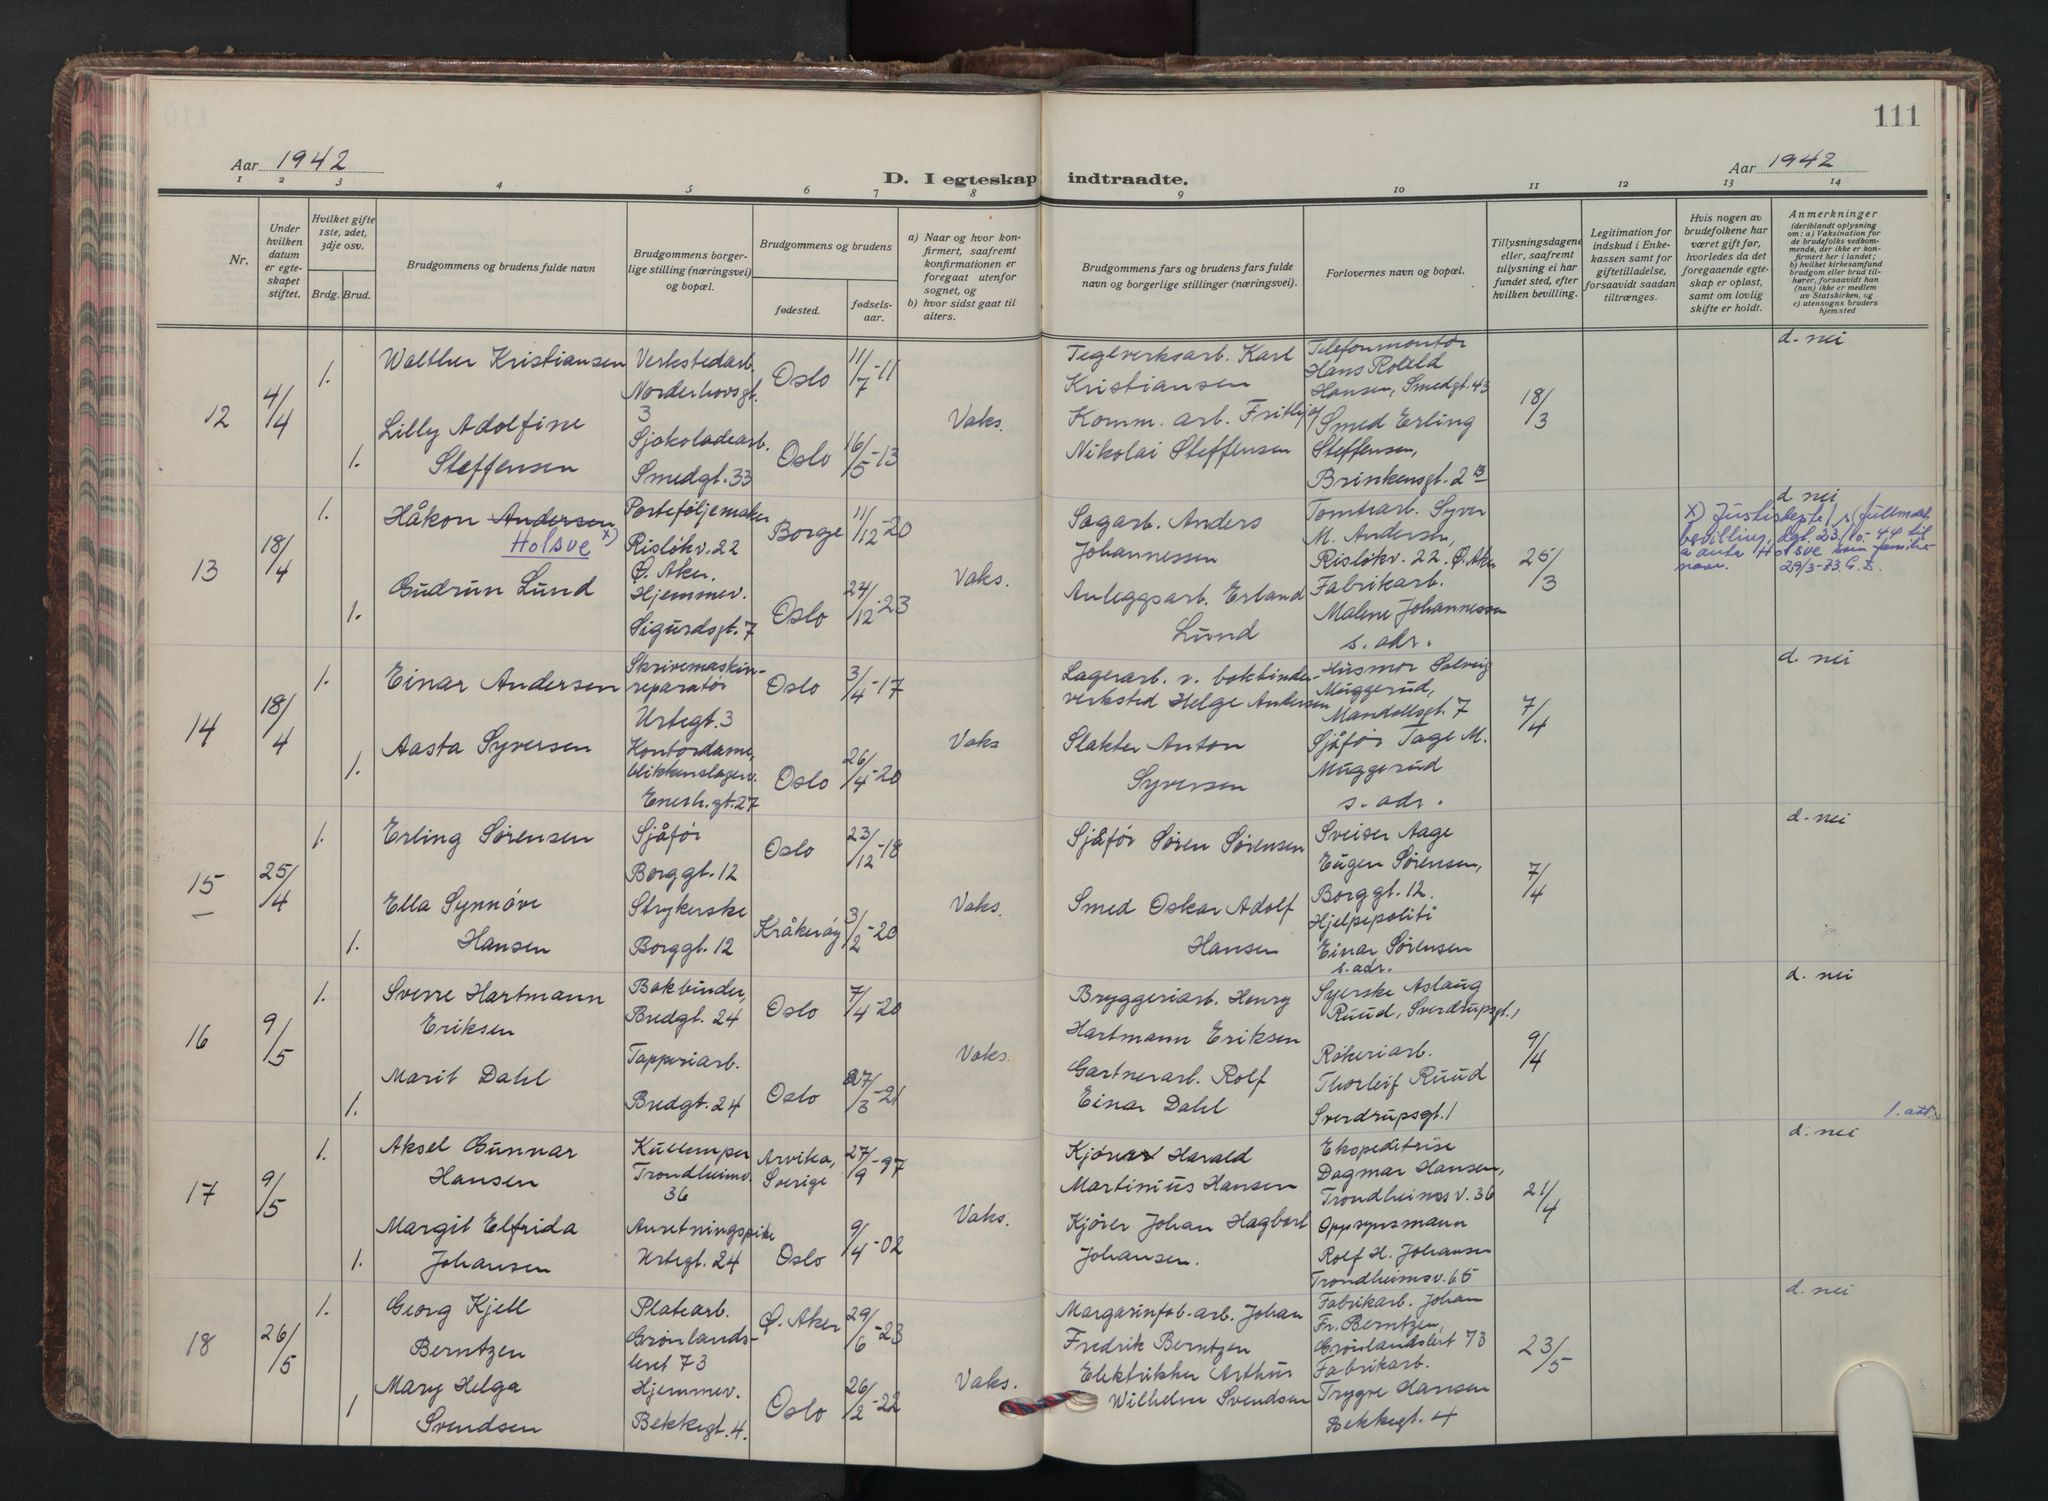 111
Aar 1942
D. I egteskap indtraadte.
Aar 1942
1 2 3 4 5 6 7 8 9 10 11 12 13 14
Nr.
Under hvilken datum er egteskapet stiftet.
Hvilket gifte 1ste, 2det, 3dje osv.
Brdg. Brud.
Brudgommens og brudens fulde navn
Brudgommens borgerlige stilling (næringsvei) og bopæl.
Brudgommens og brudens
fødested.
fødselsaar.
a) Naar og hvor konfirmert, saafremt konfirmationen er foregaat utenfor sognet, og
b) hvor sidst gaat til alters.
Brudgommens fars og brudens fars fulde navn og borgerlige stillinger (næringsvei).
Forlovernes navn og bopæl.
Tillysningsdagene eller, saafremt tillysning ei har fundet sted, efter hvilken bevilling.
Legitimation for indskud i Enkekassen samt for giftetilladelse, forsaavidt saadan tiltrænges.
Hvis nogen av brudefolkene har været gift før, hvorledes da det foregaaende egteskap er opløst, samt om lovlig skifte er holdt.
Anmerkninger
(deriblandt oplysning om: a) Vaksination for de brudefolks vedkommende, der ikke er konfirmert her i landet; b) hvilket kirkesamfund brudgom eller brud tilhører, forsaavidt han (hun) ikke er medlem av Statskirken, og c) utensogns bruders hjemsted
12
4/4
1.
Walther Kristiansen
Verkstedarb.
Norderhovsgt.
3
Oslo
11/7-11
Teglverksarb. Karl
Kristiansen
Telefonmontør
Hans Roald
Hansen, Smedgt. 43
18/3
d. nei
1.
Lilly Adolfine
Steffensen
Sjokoladearb.
Smedgt. 33
Oslo
16/5-13
Vaks.
Komm. arb. Frithjof
Nikolai Steffensen
Smed Erling
Steffensen,
Brinkensgt. 2
13
18/4
1.
Håkon Andersen x)
Holsve
Porteføljemaker
Risløkv. 22
Ø. Aker.
Borge
11/12-20
Sagarb. Anders
Johannessen
Tomtearb. Syver
M. Andersen,
Risløkv. 22. Ø. Aker
25/3
d. nei
x) Justisdepte
bevilling, dgt. 23/10-44 til
å anta Holsve som familie
navn. 29/3-73. G. D.
1.
Gudrun Lund
Hjemmev.
Sigurdsgt. 7
Oslo
24/12-23
Vaks.
Anleggsarb. Erland
Lund
Fabrikarb.
Malene Johannessen
s. adr.
14
18/4
1.
Einar Andersen
Skrivemaskin-
reparatør
Urtegt. 3
Oslo
3/4-17
Lagerarb. v. bokbinder-
verksted Helge Andersen
Husmor Solveig
Muggerud,
Mandallsgt. 7
7/4
d. nei
1.
Aasta Syversen
Kontordame,
blikkenslagerv.
Enesh.gt. 27
Oslo
26/4-20
Vaks
Slakter Anton
Syversen
Sjåfør Tage M.
Muggerud
s. adr.
15
25/4
1.
Erling Sørensen
Sjåfør
Borggt. 12
Oslo
23/12-18
Sjåfør Søren Sørensen
Sveiser Aage
Eugen Sørensen,
Borggt. 12.
7/4
d. nei
1.
Ella Synnøve
Hansen
Strykerske
Borggt. 12
Kråkerøy
3/2-20
Vaks.
Smed Oskar Adolf
Hansen
Hjelpepoliti
Einar Sørensen
s. adr.
16
9/5
1.
Sverre Hartmann
Eriksen
Bokbinder,
Bredgt. 24
Oslo
7/4-20
Bryggeriarb. Henry
Hartmann Eriksen
Syerske Aslaug
Ruud, Sverdrupsgt. 1
9/4
d. nei
1.
Marit Dahl
Tapperiarb.
Bredgt. 24
Oslo
27/3-21
Vaks.
Gartnerarb. Rolf
Einar Dahl
Røkeriarb.
Thorleif Ruud
Sverdrupsgt. 1
1. att.
17
9/5
1.
Aksel Gunnar
Hansen
Kullemper
Trondheimsv.
36
Arvika,
Sverige
27/9-97
Kjører Harald
Martinius Hansen
Ekspeditrise
Dagmar Hansen,
Trondheimsv. 36
21/4
d. nei
1.
Margit Elfrida
Johansen
Anretningspike
Urtegt. 24
Oslo
9/4-02
Vaks.
Kjører Johan Hagbart
Johansen.
Oppsynsmann
Rolf H. Johansen
Trondheimsv. 65
18
26/5
1.
Georg Kjell
Berntzen
Platearb.
Grønlands-
leret 73
Ø. Aker
29/6-23
Margarinfab. arb. Johan
Fredrik Berntzen
Fabrikarb. Johan
Fr. Berntzen,
Grønlandslert 73
23/5
d. nei
1
Mary Helga
Svendsen
Hjemmev.
Bekkegt. 4.
Oslo
26/2-22
Vaks.
Elektriker Arthur
Wilhelm Svendsen
Fabrikarb.
Trygve Hansen
Bekkegt. 4